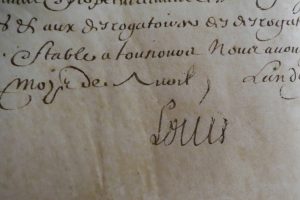 & aux desrogatoires des desrogat
stable a tousiours Nous avon
Mois de Avril L'an d
Louis